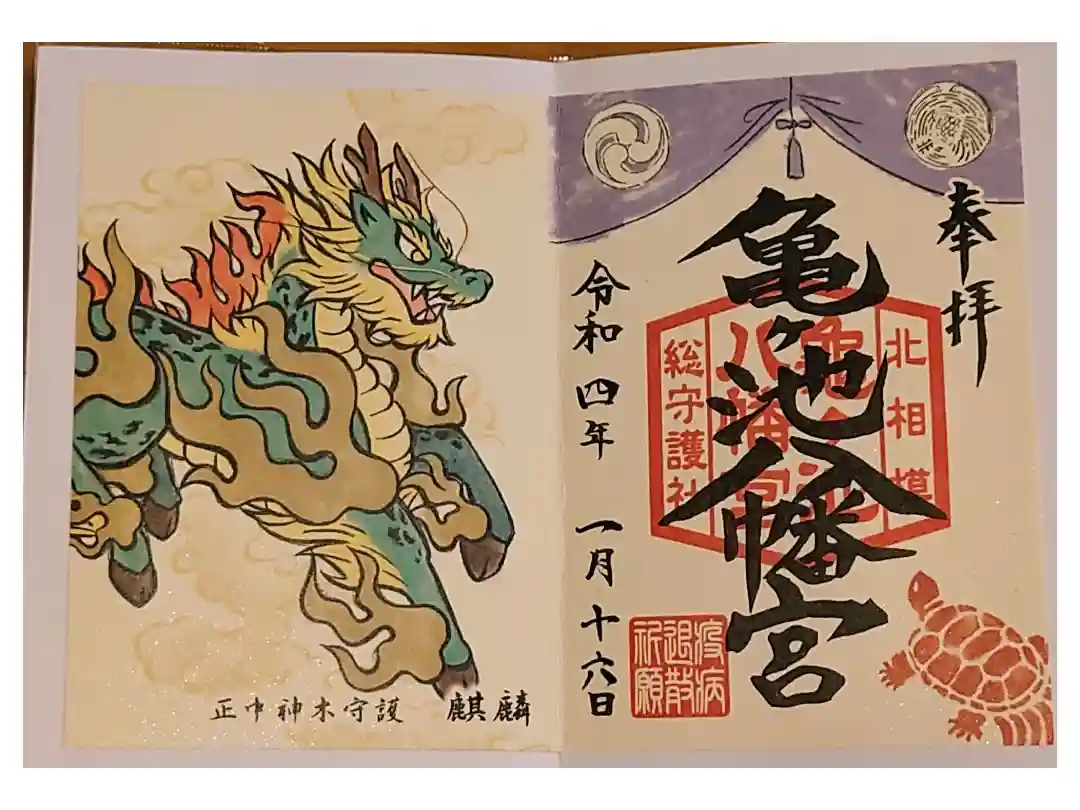 奉拝
亀ヶ池八幡宮
北相模
亀ヶ池
八幡宮
総守護社
令和四年 一月十六日
疫病
退散
祈願
正中神木守護 麒麟